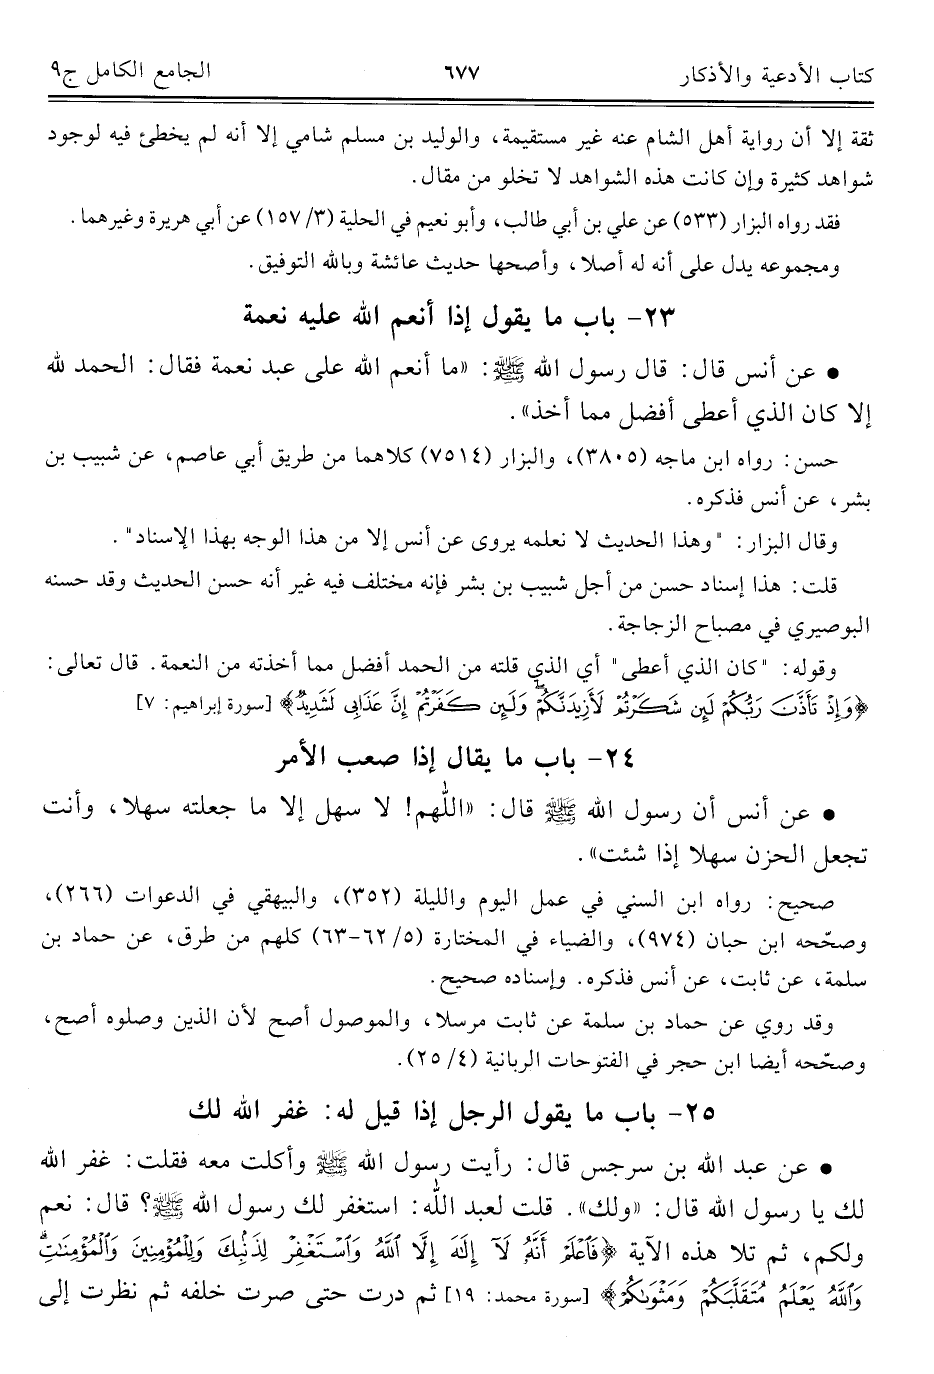 كتاب الأدعية والأذكار ٦٧٧ الجامع الكامل ج٩
ثقة إلا أن رواية أهل الشام عنه غير مستقيمة، والوليد بن مسلم شامي إلا أنه لم يخطئ فيه لوجود
شواهد كثيرة وإن كانت هذه الشواهد لا تخلو من مقال.
فقد رواه البزار (٥٣٣) عن علي بن أبي طالب، وأبو نعيم في الحلية (٣/ ١٥٧) عن أبي هريرة وغيرهما.
ومجموعه يدل على أنه له أصلا، وأصحها حديث عائشة وبالله التوفيق.
٢٣- باب ما يقول إذا أنعم الله عليه نعمة
• عن أنس قال: قال رسول الله ﷺ: «ما أنعم الله على عبد نعمة فقال: الحمد لله
إلا كان الذي أعطى أفضل مما أخذ».
حسن: رواه ابن ماجه (٣٨٠٥)، والبزار (٧٥١٤) كلاهما من طريق أبي عاصم، عن شبيب بن
بشر، عن أنس فذكره.
وقال البزار: "وهذا الحديث لا نعلمه يروى عن أنس إلا من هذا الوجه بهذا الإسناد".
قلت: هذا إسناد حسن من أجل شبيب بن بشر فإنه مختلف فيه غير أنه حسن الحديث وقد حسنه
البوصيري في مصباح الزجاجة.
وقوله: "كان الذي أعطى" أي الذي قلته من الحمد أفضل مما أخذته من النعمة. قال تعالى:
﴿وَإِذْ تَأَذَّنَ رَبُّكُمْ لَئِن شَكَرْتُمْ لَأَزِيدَنَّكُمْ ۖ وَلَئِن كَفَرْتُمْ إِنَّ عَذَابِي لَشَدِيدٌ﴾ [سورة إبراهيم: ٧]
٢٤- باب ما يقال إذا صعب الأمر
• عن أنس أن رسول الله ﷺ قال: «اللّٰهم! لا سهل إلا ما جعلته سهلا، وأنت
تجعل الحزن سهلا إذا شئت».
صحيح: رواه ابن السني في عمل اليوم والليلة (٣٥٢)، والبيهقي في الدعوات (٢٦٦)،
وصحّحه ابن حبان (٩٧٤)، والضياء في المختارة (٥/ ٦٢-٦٣) كلهم من طرق، عن حماد بن
سلمة، عن ثابت، عن أنس فذكره. وإسناده صحيح.
وقد روي عن حماد بن سلمة عن ثابت مرسلا، والموصول أصح لأن الذين وصلوه أصح،
وصحّحه أيضا ابن حجر في الفتوحات الربانية (٤/ ٢٥).
٢٥- باب ما يقول الرجل إذا قيل له: غفر الله لك
• عن عبد الله بن سرجس قال: رأيت رسول الله ﷺ وأكلت معه فقلت: غفر الله
لك يا رسول الله قال: «ولك». قلت لعبد اللّٰه: استغفر لك رسول الله ﷺ؟ قال: نعم
ولكم، ثم تلا هذه الآية ﴿فَاعْلَمْ أَنَّهُ لَا إِلَٰهَ إِلَّا اللَّهُ وَاسْتَغْفِرْ لِذَنبِكَ وَلِلْمُؤْمِنِينَ وَالْمُؤْمِنَاتِ ۗ
وَاللَّهُ يَعْلَمُ مُتَقَلَّبَكُمْ وَمَثْوَاكُمْ﴾ [سورة محمد: ١٩] ثم درت حتى صرت خلفه ثم نظرت إلى